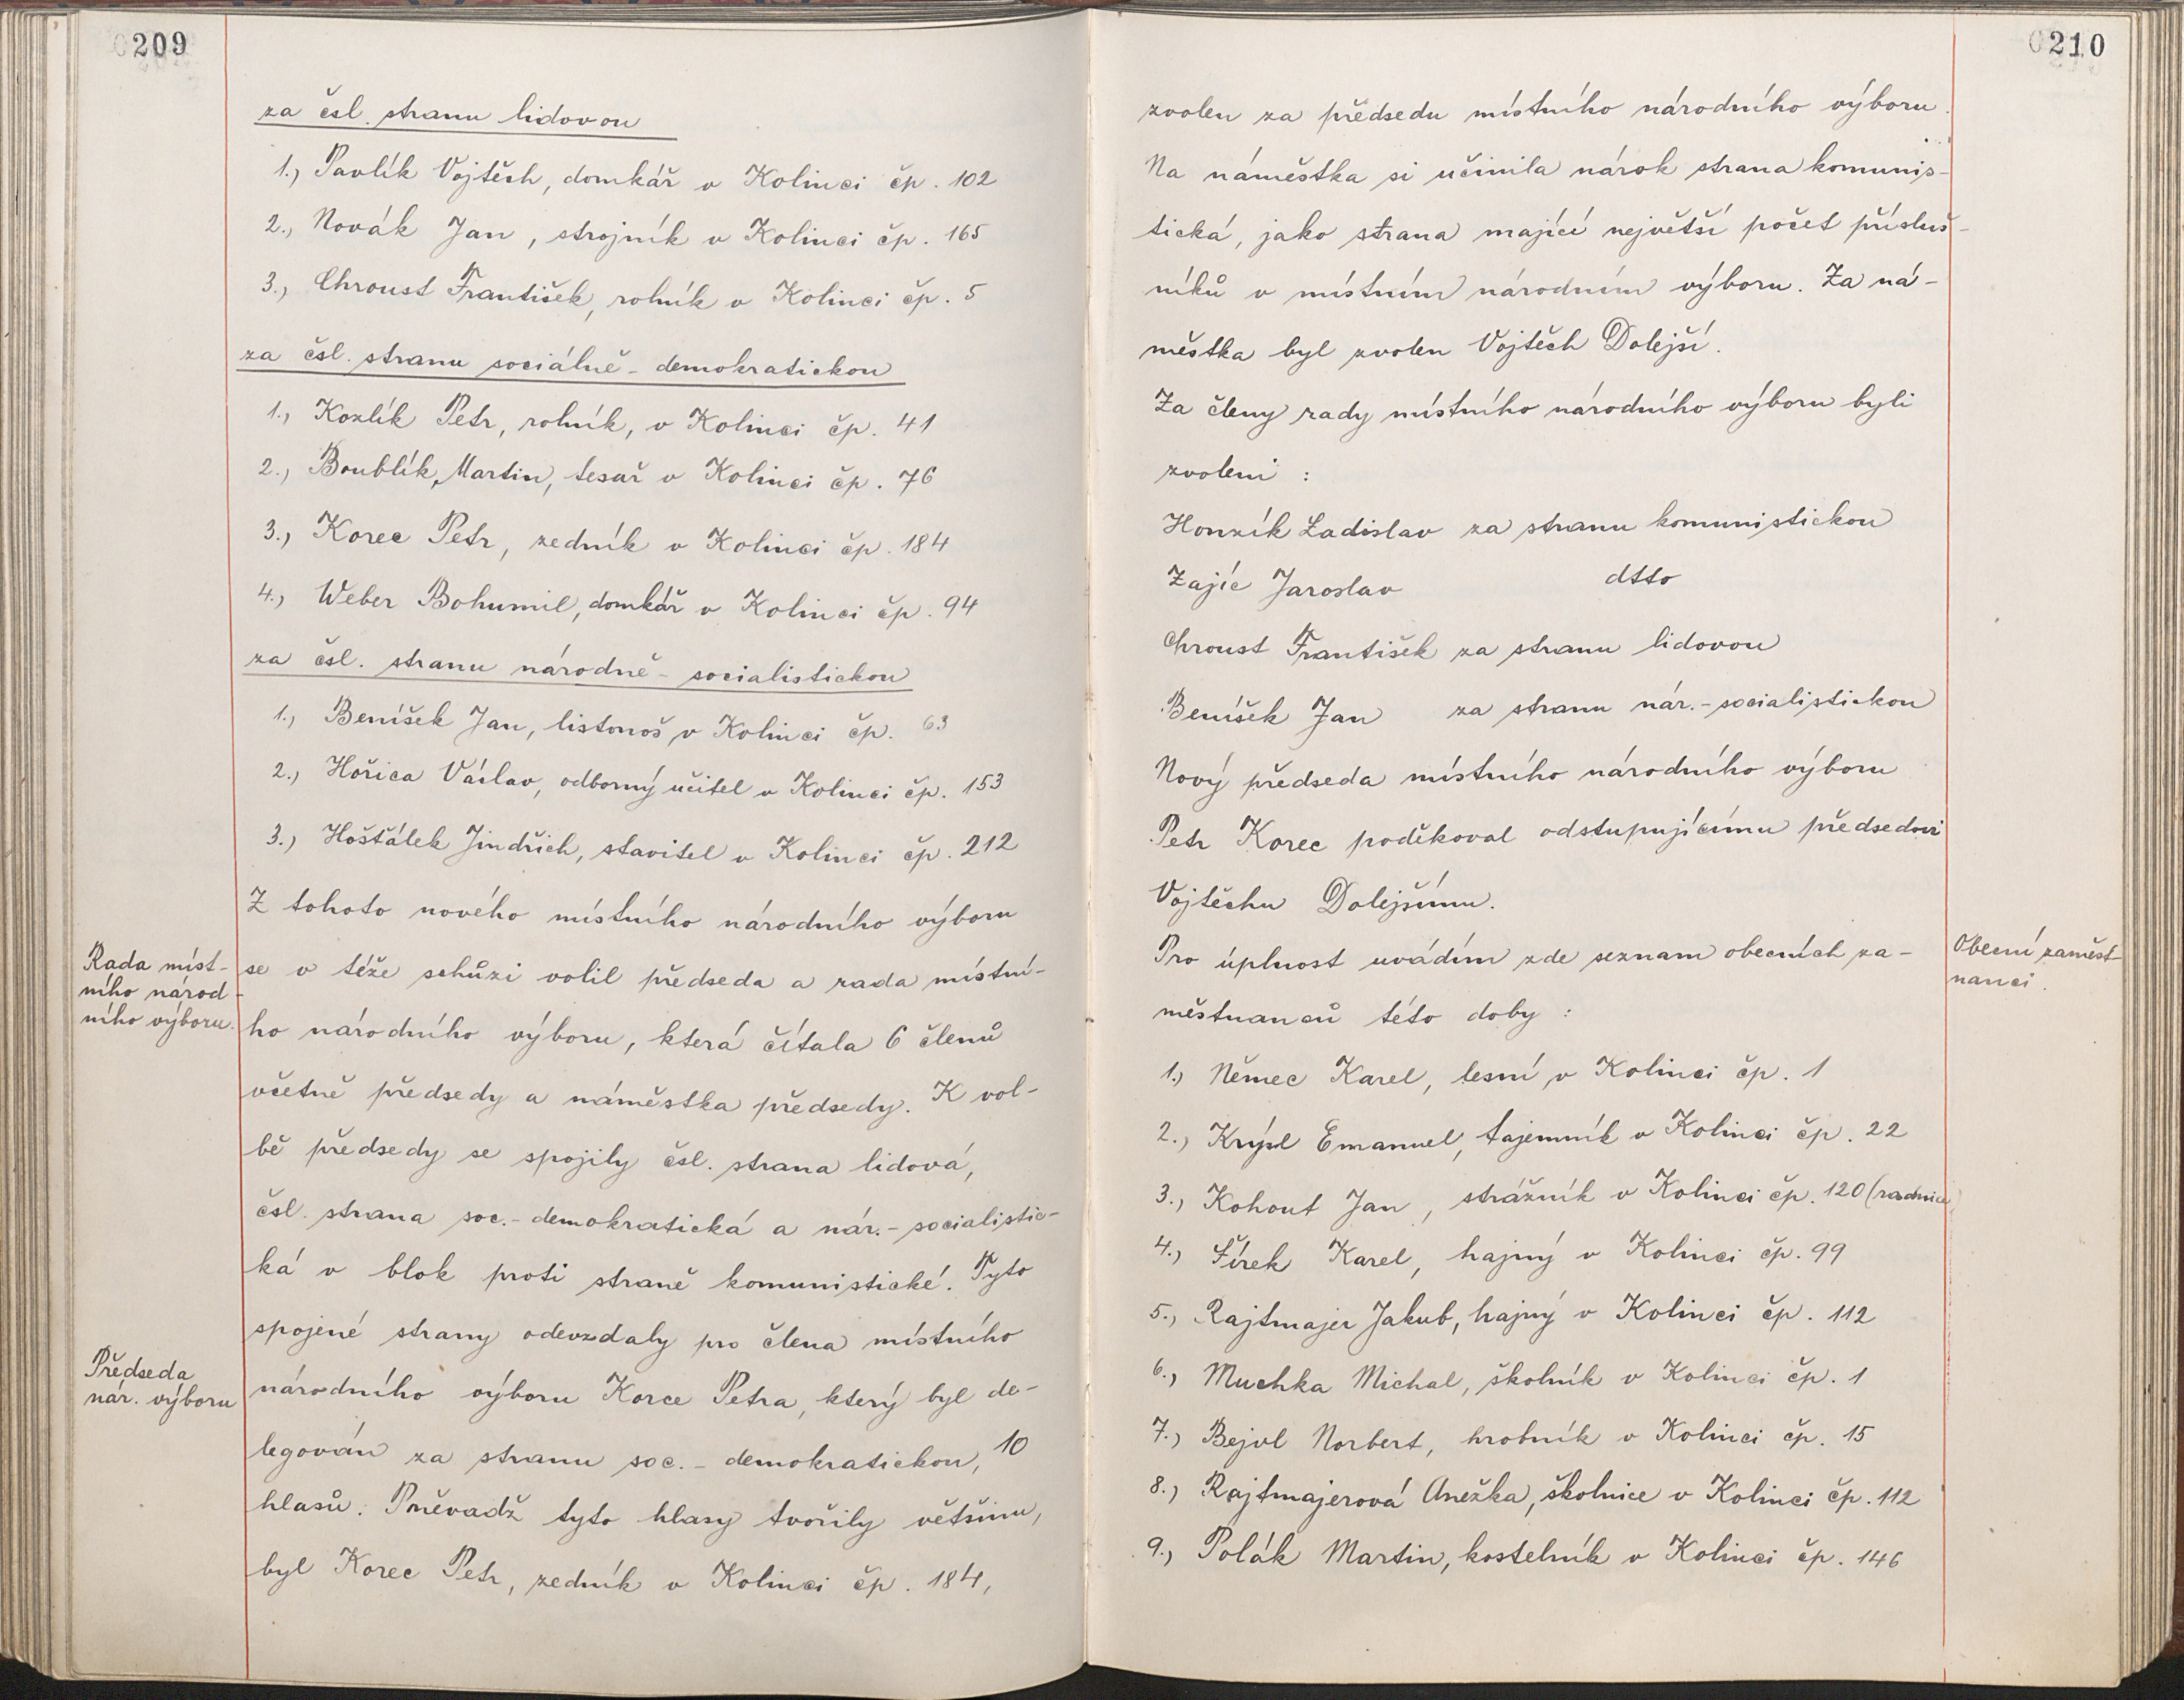 209
za čsl. stranu lidovou
1., Pavlík Vojtěch, domkář v Kolinci čp. 102
2., Novák Jan, strojník v Kolinci čp. 165
3., Chroust František, rolník v Kolinci čp. 5
za čsl. stranu sociálně-demokratickou
1., Kozlík Petr, rolník, v Kolinci čp. 41
2., Boublík, Martin, tesař v Kolinci čp. 76
3., Korec Petr, zedník v Kolinci čp. 184
4., Weber Bohumil, domkář v Kolinci čp. 94
za čsl. stranu národně-socialistickou
1., Beníšek Jan, listonoš, v Kolinci čp. 63
2., Hořica Václav, odborný učitel v Kolinci čp. 153
3.) Hošťálek Jindřich, stavitel v Kolinci čp. 212
Z tohoto nového místního národního výboru
Rada míst-
ního národ-
ního výboru.
se v téže schůzi volil předseda a rada místní-
ho národního výboru, která čítala 6 členů
včetně předsedy a náměstka předsedy. K vol-
bě předsedy se spojily čsl. strana lidová,
čsl. strana soc.-demokratická a nár.-socialistic-
ká v blok proti straně komunistické. Tyto
spojené strany odevzdaly pro člena místního
Předseda
nár. výboru
národního výboru Korce Petra, který byl de-
legován za stranu soc.-demokratickou, 10
hlasů. Poněvadž tyto hlasy tvořily většinu,
byl Korec Petr, zedník v Kolinci čp. 184,
210
zvolen za předsedu místního národního výboru.
Na náměstka si učinila nárok strana komunis-
tická, jako strana mající největší počet přísluš-
níků v místním národním výboru. Za ná-
městka byl zvolen Vojtěch Dolejší.
Za členy rady místního národního výboru byli
zvoleni:
Honzík Ladislav za stranu komunistickou
Zajíc Jaroslav dtto
Chroust František za stranu lidovou
Beníšek Jan za stranu nár.-socialistickou
Nový předseda místního národního výboru
Petr Korec poděkoval odstupujícímu předsedovi
Vojtěchu Dolejšímu.
Pro úplnost uvádím zde seznam obecních za-
Obecní zaměst-
nanci.
městnanců této doby:
1.) Němec Karel, lesní, v Kolinci čp. 1
2., Krýsl Emanuel, tajemník v Kolinci čp. 22
3., Kohout Jan, strážník v Kolinci čp. 120 (radnice)
4.) Šírek Karel, hajný v Kolinci čp. 99
5., Rajtmajer Jakub, hajný v Kolinci čp. 112
6., Muchka Michal, školník v Kolinci čp. 1
7.) Bejvl Norbert, hrobník v Kolinci čp. 15
8.) Rajtmajerová Anežka, školnice v Kolinci čp. 112
9., Polák Martin, kostelník v Kolinci čp. 146